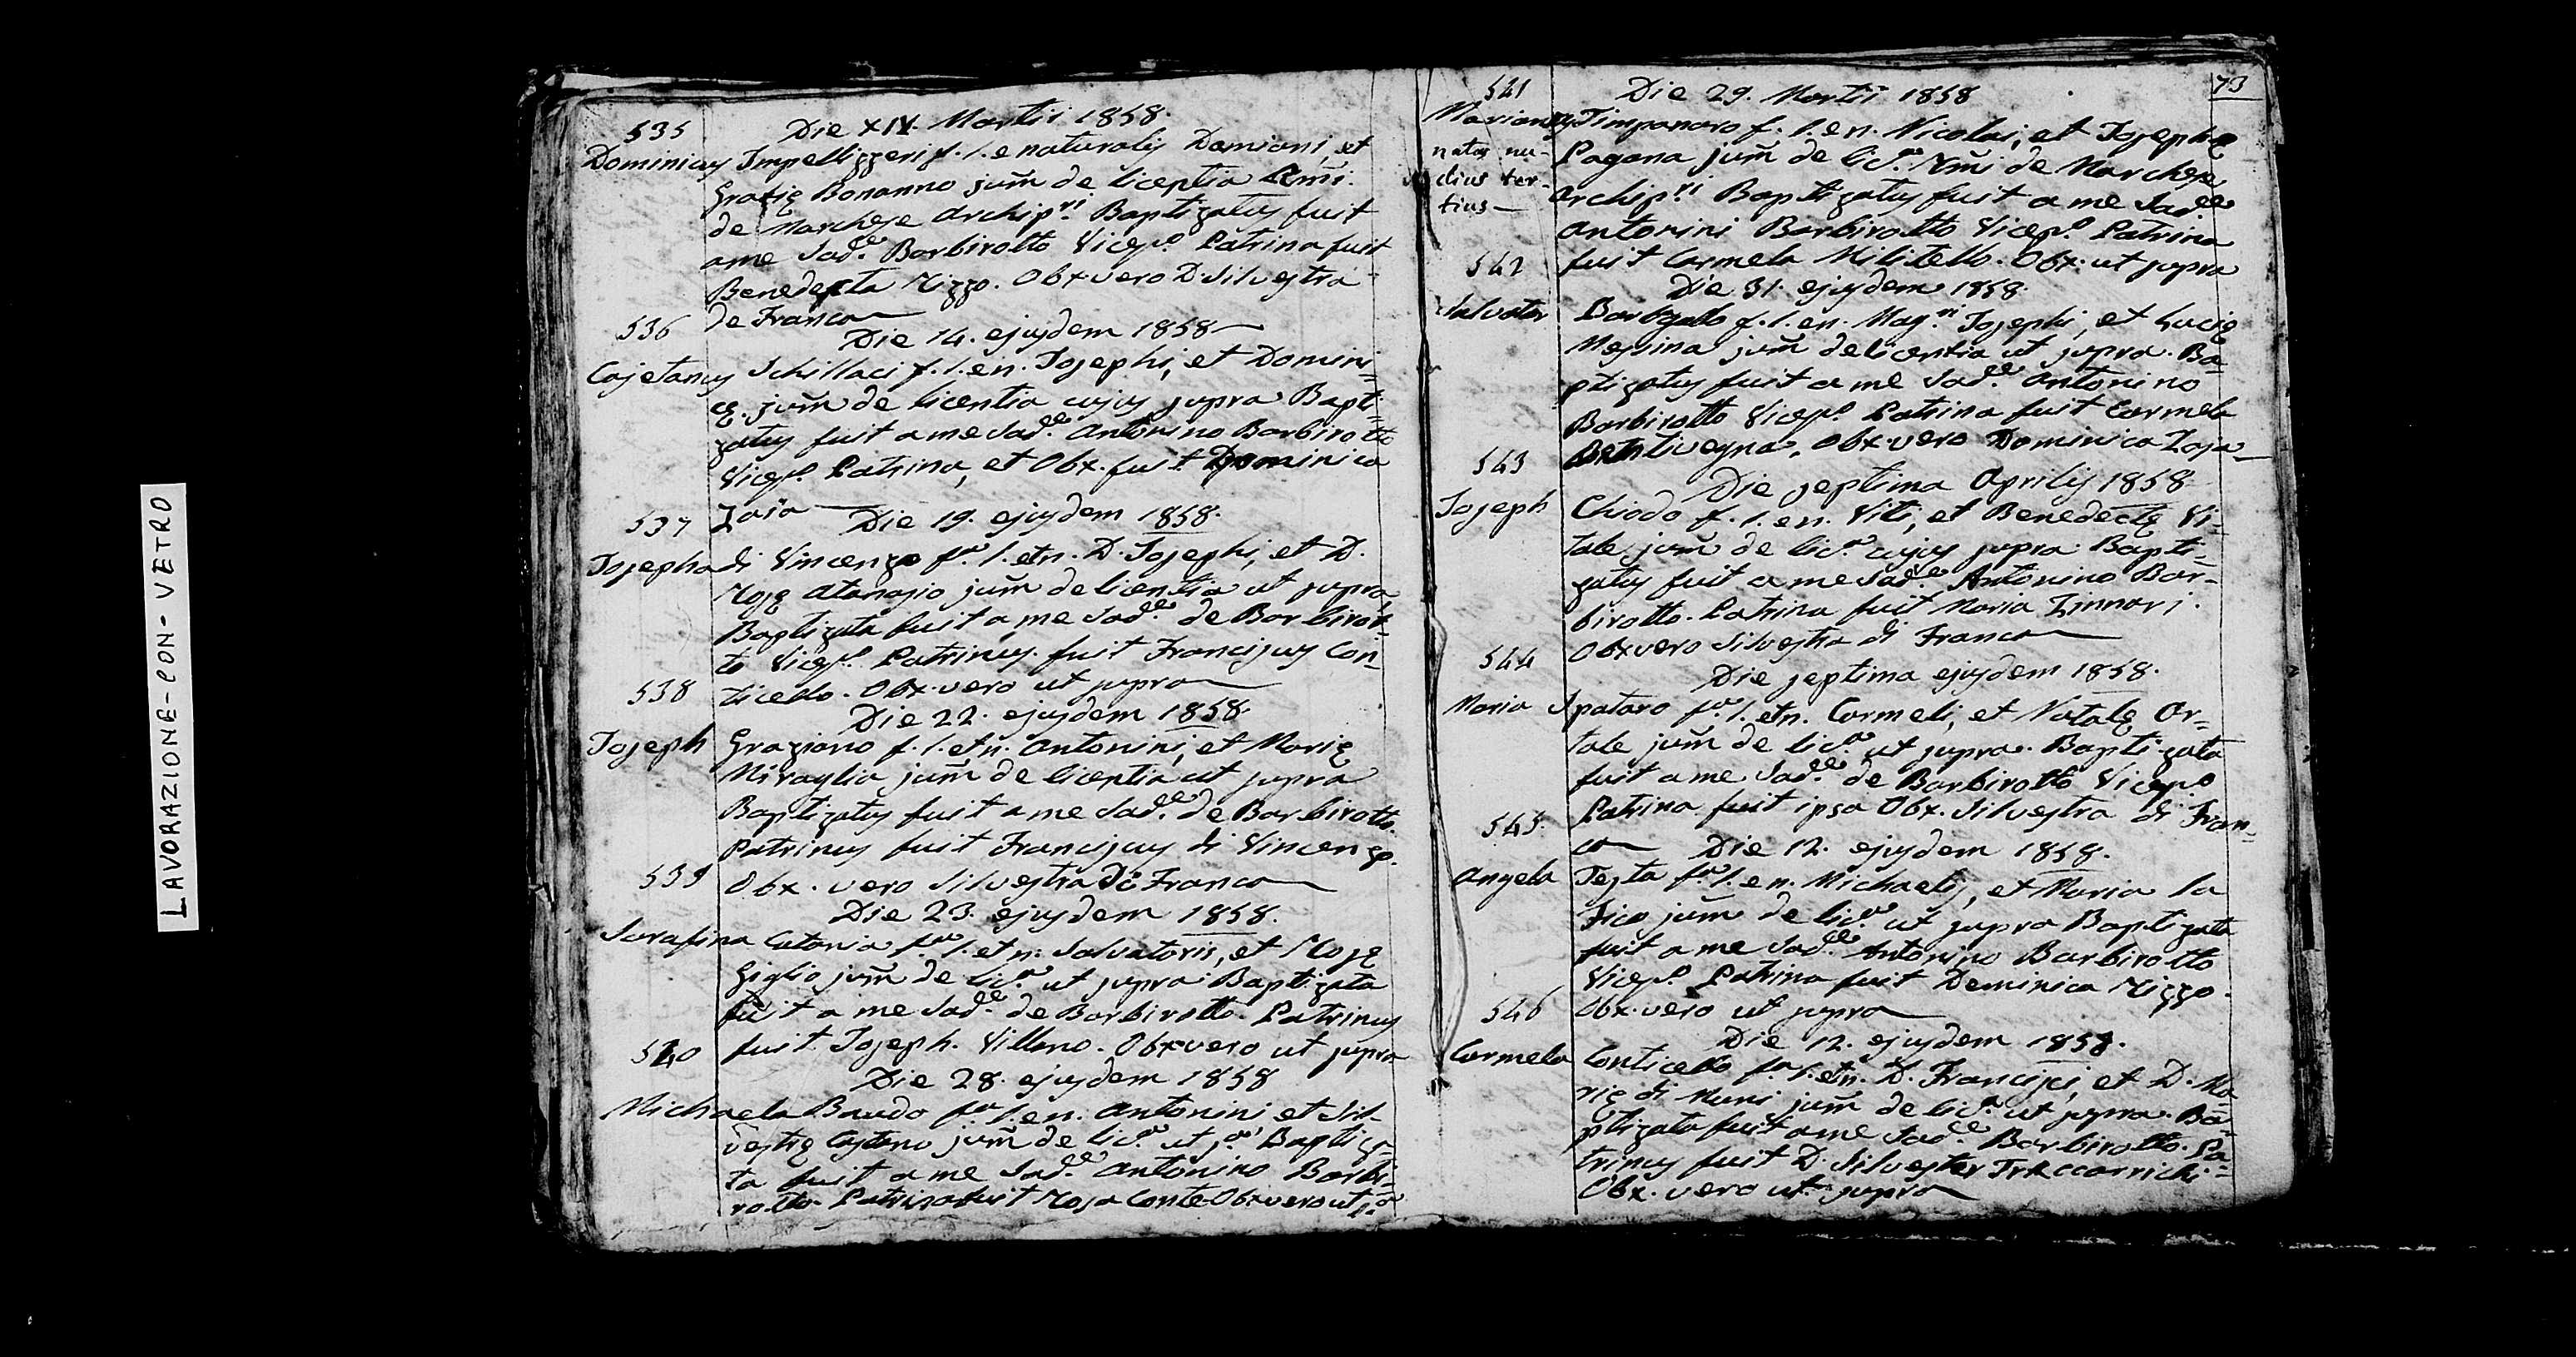 LAVORAZIONE-CON-VETRO
535
Die XIV. Martii 1858.
Dominicus Impellizzeri f. l. e naturalis Damiani, et
Gratię Bonanno jum̃ de licentia Rm̃i.
de Marchese Archip.ri Baptizatus fuit
a me Sad.e Barbirotto Vicep.o Patrina fuit
Benedecta Rizzo. Obx vero D. Silvestra
de Franco
536
Die 14. ejusdem 1858
Cajetanus Schillaci f. l. e n. Josephi, et Domini-
cę jum̃ de licentia cujus supra Bapti-
zatus fuit a me Sad.e Antonino Barbirotto
Vicep.o Patrina, et Obx. fuit Dominica
Zaia
537
Die 19. ejusdem 1858.
Josepha di Vincenzo f.a l. et n. D. Josephi, et D.
Rosę Atanasio jum̃ de licentia ut supra
Baptizata fuit a me Sad.e de Barbirot-
to Vicep.o Patrinus fuit Franciscus Con-
ticello. Obx. vero ut supra
538
Die 22. ejusdem 1858.
Joseph Graziano f. l. et n. Antonini, et Marię
Miraglia jum̃ de licentia ut supra
Baptizatus fuit a me Sad.e de Barbirotto.
Patrinus fuit Franciscus di Vincenzo.
Obx. vero Silvestra di Franco
539
Die 23. ejusdem 1858.
Serafina Catania f.a l. et n. Salvatoris, et Rosę
Giglio jum̃ de lic.a ut supra Baptizata
fuit a me Sad.e de Barbirotto. Patrinus
fuit Joseph Villano. Obx vero ut supra
540
Die 28. ejusdem 1858
Michaela Baudo f.a l. e n. Antonini et Sil-
vestrę Castano jum̃ de lic.a ut s.a Baptiza-
ta fuit a me Sad.e Antonino Barbi-
rotto. Patrina fuit Rosa Conte Obx vero ut s.a
73
541
Die 29. Martii 1858
Marianus Timpanaro f. l. e n. Nicolai, et Josephę
natus nu-
dius ter-
tius
Pagana jum̃ de lic.a Rm̃i de Marchese
Archip.ri Baptizatus fuit a me Sad.e
Antonini Barbirotto Vicep.o Patrina
fuit Carmela Militello. Obx. ut supra
542
Die 31. ejusdem 1858.
Salvator Barbgallo f. l. e n. Mag.ri Josephi, et Lucię
Messina jum̃ de licentia ut supra. Ba-
ptizatus fuit a me Sad.e Antonino
Barbirotto Vicep.o Patrina fuit Carmela
Bentivegna, Obx vero Dominica Zaja
543
Die septima Aprilis 1858
Joseph Chiodo f. l. e n. Viti, et Benedectę Vi-
tale jum̃ de lic.a cujus supra Bapti-
zatus fuit a me Sad.e Antonino Bar-
birotto. Patrina fuit Maria Zinnari.
Obx vero Silvestra di Franco
544
Die septima ejusdem 1858.
Maria Spataro f.a l. et n. Carmeli, et Natalę Or-
tale jum̃ de lic.a ut supra. Baptizata
fuit a me Sad.e de Barbirotto Vicep.o
Patrina fuit ipsa Obx. Silvestra di Fran-
co
545.
Die 12. ejusdem 1858.
Angela Testa f.a l. e n. Michaelis, et Maria la
Fico jum̃ de lic.a ut supra Baptizata
fuit a me Sad.e Antonino Barbirotto
Vicep.o Patrina fuit Dominica Rizzo.
Obx. vero ut supra
546
Die 12. ejusdem 1858.
Carmela Conticello f.a l. et n. D. Francisci, et D. Ma-
rię di Muni jum̃ de lic.a ut supra. Ba-
ptizata fuit a me Sad.e Barbirotto. Pa-
trinus fuit D. Silvester Traccarrichi
Obx. vero ut supra